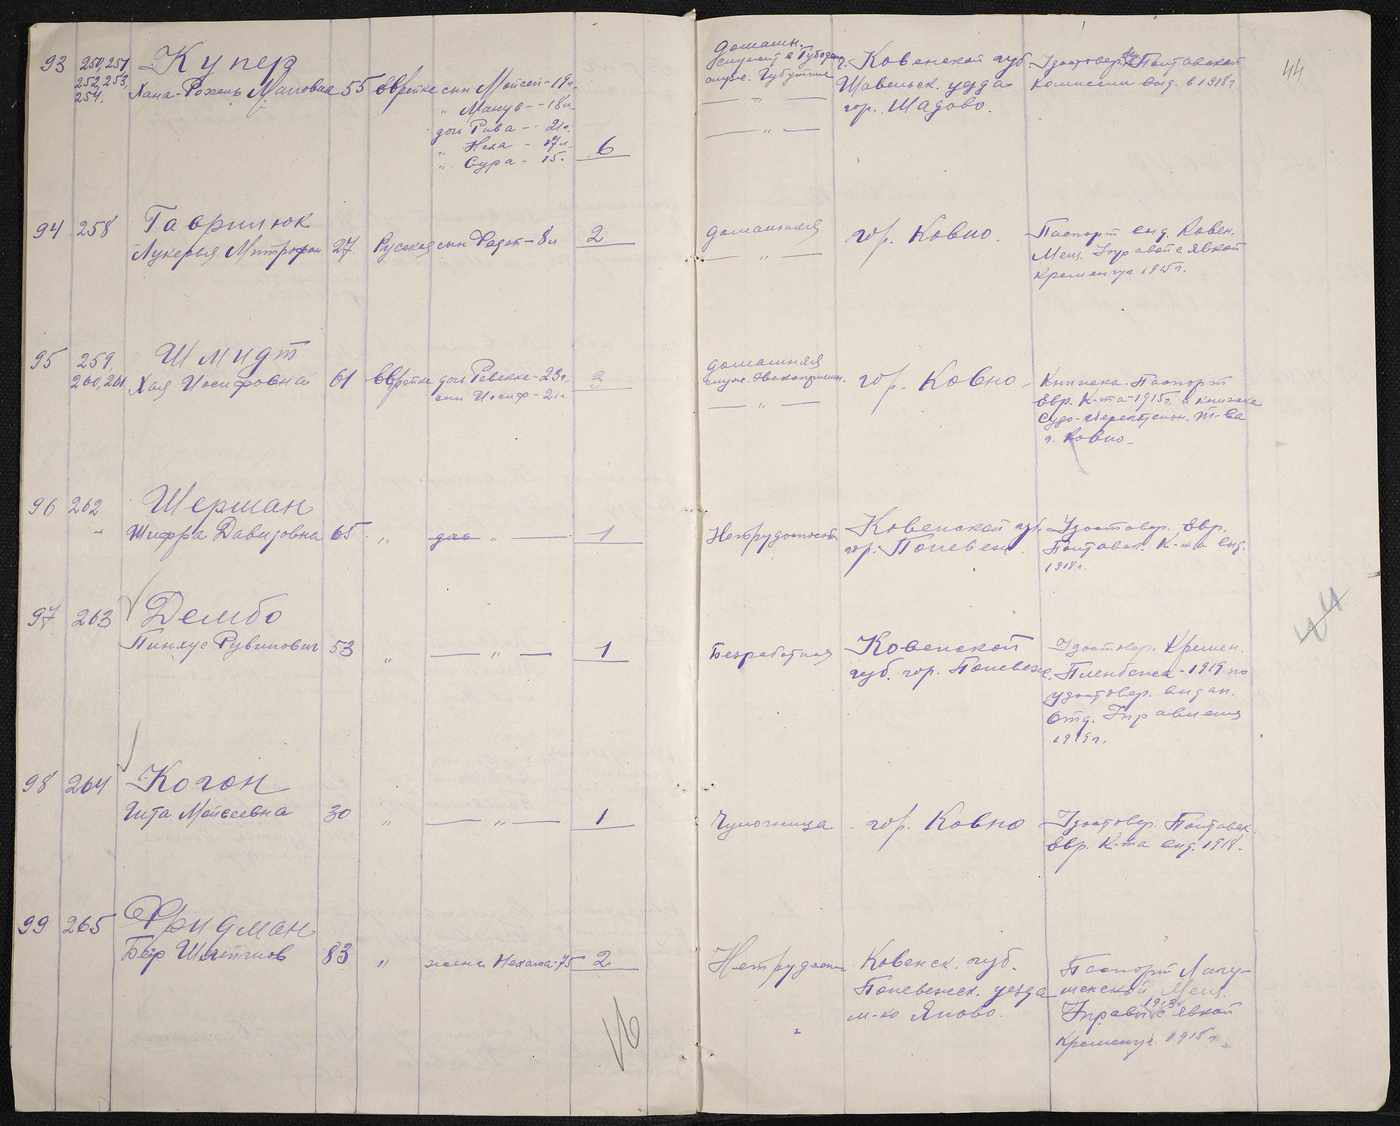 93 250, 251, 252, 253, 254.
Купер
Хана-Рохень Маловая 55 еврейка сын Мойсей - 19 л.
" Мануь - 18 л.
доч Рива - 21 г.
" Неха - 17 л.
" Сура - 15. 6
домашн.
служ. Губ
— " —
— " —
Ковенской губ.
Шавельск. уезда
гор. Шадово.
Удостовер. Полтавской
комиссии выд. в 1918 г
44
94 258 Гаврилюк
Лукерья Митрофан 27 Русская сын Фадей - 8 л 2
домашняя
— " —
гор. Ковно.
Паспорт выд. Ковен.
Мещ. Управой с явкой
Кременчуг 1915 г.
95 259, 260, 261
Шмидт
Хая Иосифовна 61 еврейка доч Ревекка - 23 г.
сын Иосиф - 21 г. 3
домашняя
— " —
гор. Ковно
Книжка Паспорт
Евр. К-та 1915 г. и книжка
Судо-сберегат. Т-ва
г. Ковно
96 262 Шерман
Шифра Давидовна 65 " — " — 1
Нетрудоспособ
Ковенской губ.
гор. Поневеж
Удостовер. Евр.
Полтавск. К-та выд.
1918 г.
97 263 Дембо
Пинхус Рувинович 53 " — " — 1
Безработная
Ковенской
губ. гор. Поневеж
Удостовер. Кремен.
Пленбежа - 1919 по
удостовер. выдан.
Отд. Управления
1919 г.
44
98 264 Когон
Гита Мойсеевна 30 " — " — 1
Чулочница
гор. Ковно
Удостовер. Полтавск.
Евр. К-та выд. 1918.
99 265 Фридман
Бер 83 " жена Нехама - 75 2
Нетрудосп
"
Ковенск. губ.
Поневежск. уезда
м-ко Яново.
Паспорт
Мещ.
Управы 1913 г. с явкой
Кременчуг 1915 г.
16